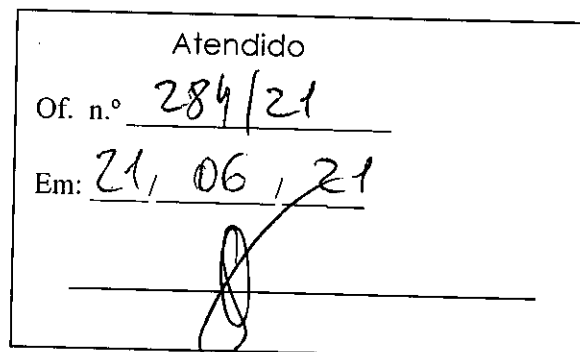 Atendido
Of. n.º 284/21
Em: 21, 06, 21